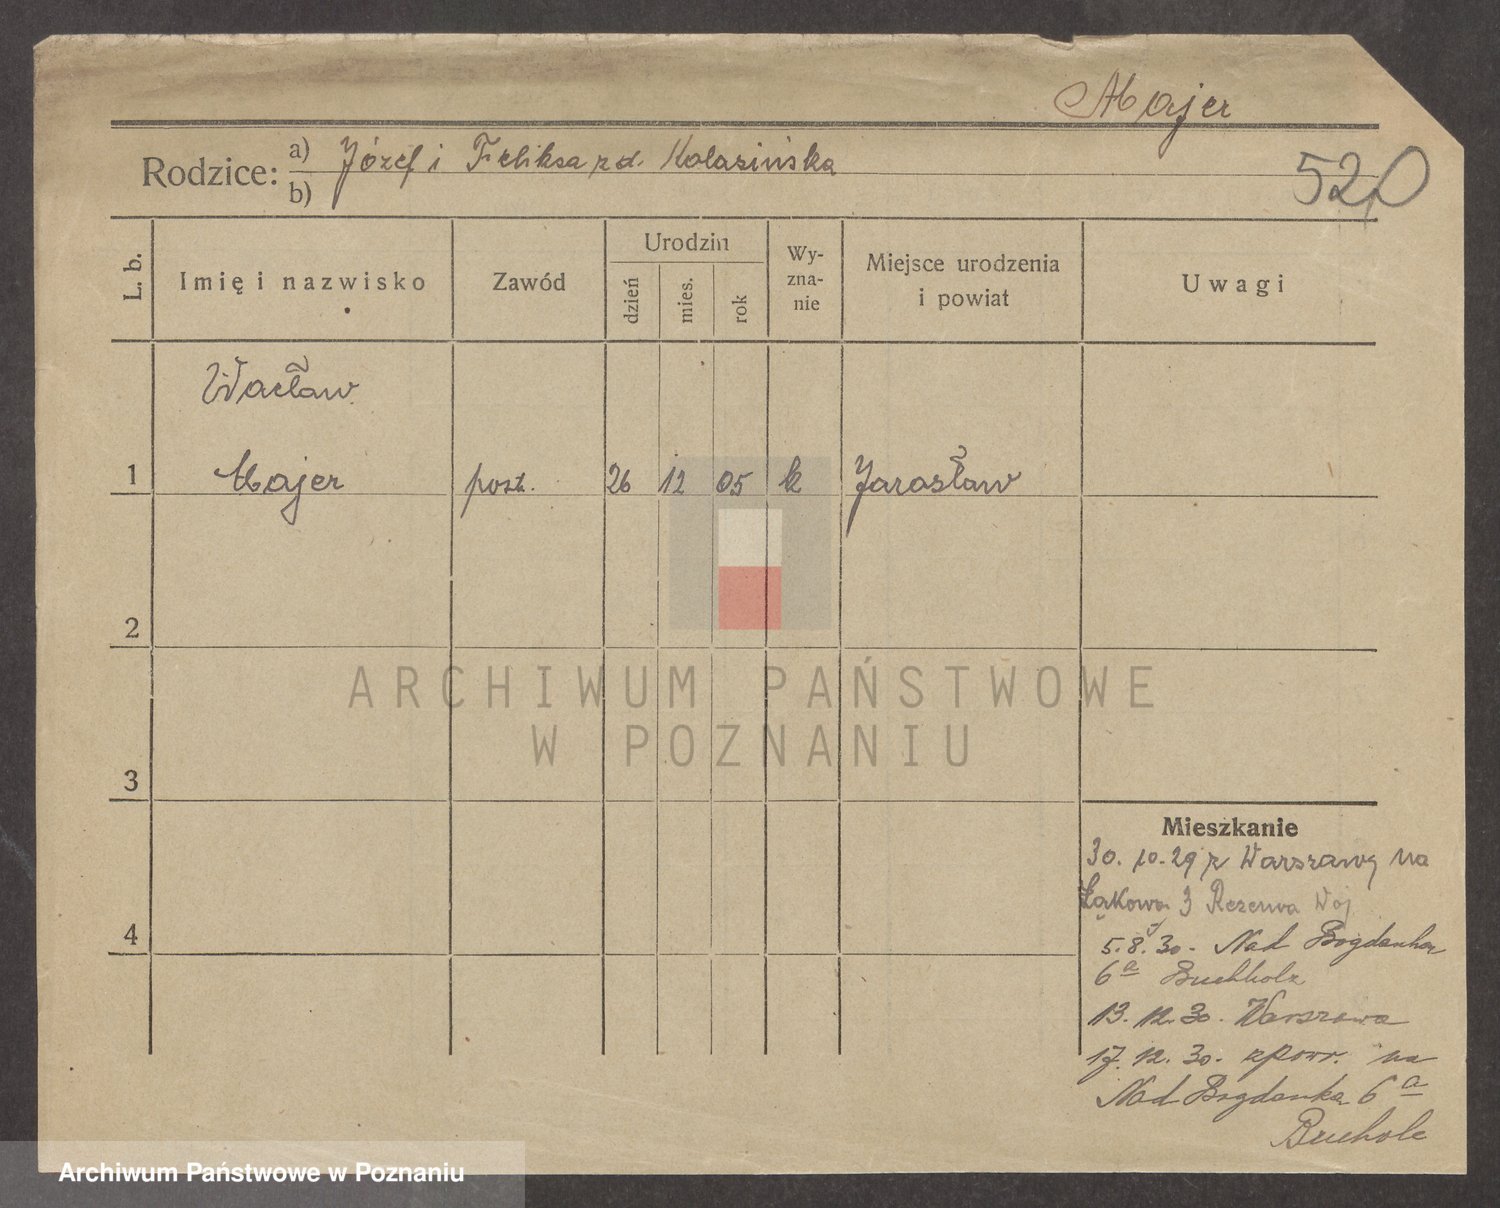 Majer
520
Rodzice: a) Józef i Feliksa z d. Kolasińska
b)
L. b. Imię i nazwisko Zawód Urodzin dzień mies. rok Wy-zna-nie Miejsce urodzenia i powiat Uwagi
Wacław
1 Majer post. 26 12 05 k Jarosław
2
3
4
ARCHIWUM PAŃSTWOWE
W POZNANIU
Mieszkanie
30. 10. 29 z Warszawy na
Łąkowa 3 Rezerwa Woj
5. 8. 30. Nad Bogdanka
6a Buchholz
13. 12. 30. Warszawa
17. 12. 30. z powr. na
Nad Bogdanka 6a
Bucholc
Archiwum Państwowe w Poznaniu